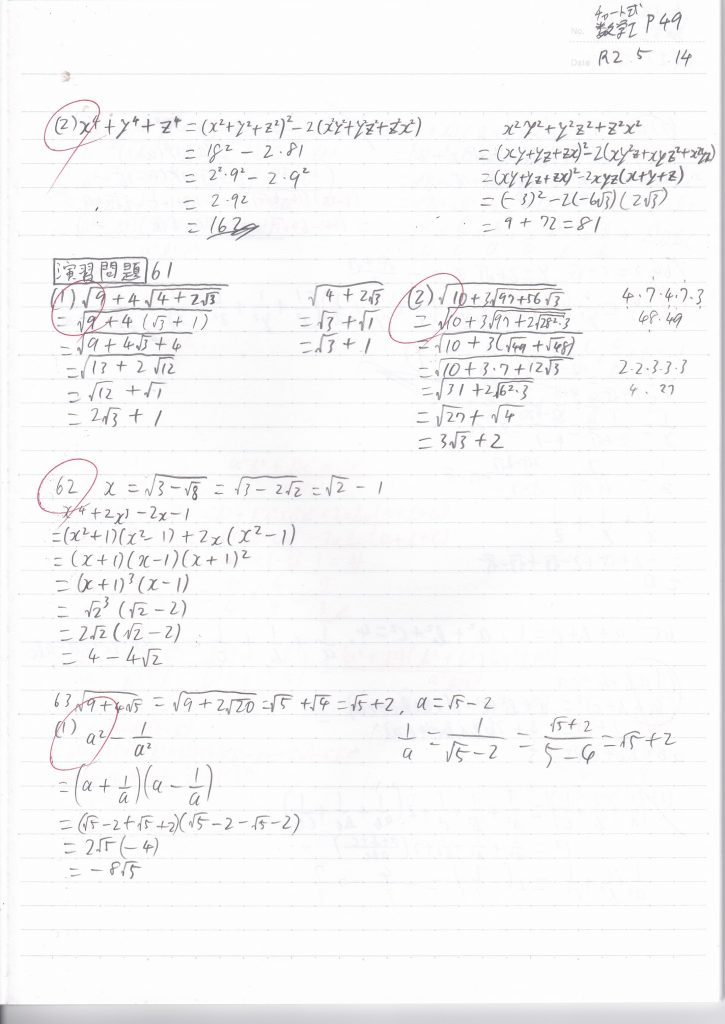 チャート式
No. 数学I P49
Date R2 5 14
(2) x⁴+y⁴+z⁴ = (x²+y²+z²)² - 2(x²y²+y²z²+z²x²)
= 18² - 2・81
= 2²・9² - 2・9²
= 2・92
= 162
x²y²+y²z²+z²x²
= (xy+yz+zx)² - 2(xy²z+xyz²+x²yz)
= (xy+yz+zx)² - 2xyz(x+y+z)
= (-3)² - 2(-6√3)(2√3)
= 9 + 72 = 81
演習問題 61
(1) √(9+4√(4+2√3))
= √(9+4(√3+1))
= √(9+4√3+4)
= √(13+2√12)
= √12 + √1
= 2√3 + 1
√(4+2√3)
= √3 + √1
= √3 + 1
(2) √(10+3√(97+56√3))
= √(10+3√(97+2√(28²・3)))
= √(10+3(√49+√48))
= √(10+3・7+12√3)
= √(31+2√(6²・3))
= √27 + √4
= 3√3 + 2
4・7・4・7・3
48・49
2・2・3・3・3
4・27
62 x = √(3-√8) = √(3-2√2) = √2 - 1
x⁴+2x³-2x-1
= (x²+1)(x²-1)+2x(x²-1)
= (x+1)(x-1)(x+1)²
= (x+1)³(x-1)
= √2³(√2-2)
= 2√2(√2-2)
= 4 - 4√2
63 √(9+4√5) = √(9+2√20) = √5+√4 = √5+2, a = √5-2
(1) a² - 1/a²
= (a + 1/a)(a - 1/a)
= (√5-2+√5+2)(√5-2-√5-2)
= 2√5(-4)
= -8√5
1/a = 1/(√5-2) = (√5+2)/(5-4) = √5+2